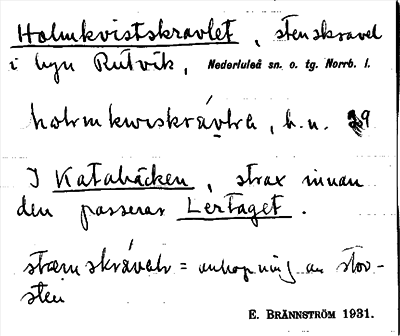 Holmkvistskravlet, stenskravel
i byn Rutvik, Nederluleå sn. o. tg. Norrb. l.
holmkwiskrávtlɐ, b.n. 29
I Katabäcken, strax innan
den passerar Lertaget.
= anhopning av stor-
sten
E. BRÄNNSTRÖM 1931.